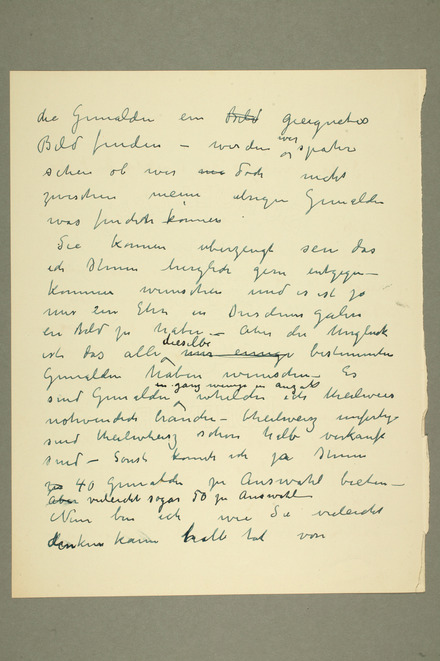 die Gemälden ein Bild geeignetes
Bild finden – werden wir später
sehen ob wir doch nicht
zwischen meine übrigen Gemälden
was finden können
Sie können uberzeugt sein das
ich Ihnen herzlich gern entgegen-
kommen wünschen und es ist ja
mir ein Ehre in Dresdens Galerie
ein Bild zu haben – Aber die Unglück
ist das alle dieselbe bestimmten
Gemälden haben wunschen – Es
sind Gemälden in ganz wenige in anzahl welchen ich theilweis
notwendich brauche – theilweis unfertige
sind theilweis schon halb verkauft
sind – Sonst konnte ich ja Ihnen
40 Gemälden zu Auswahl bieten –
Aber vieleicht sogar 50 zu Auswahl
Nun bin ich wie Sie vieleicht
denken kann halb tot von